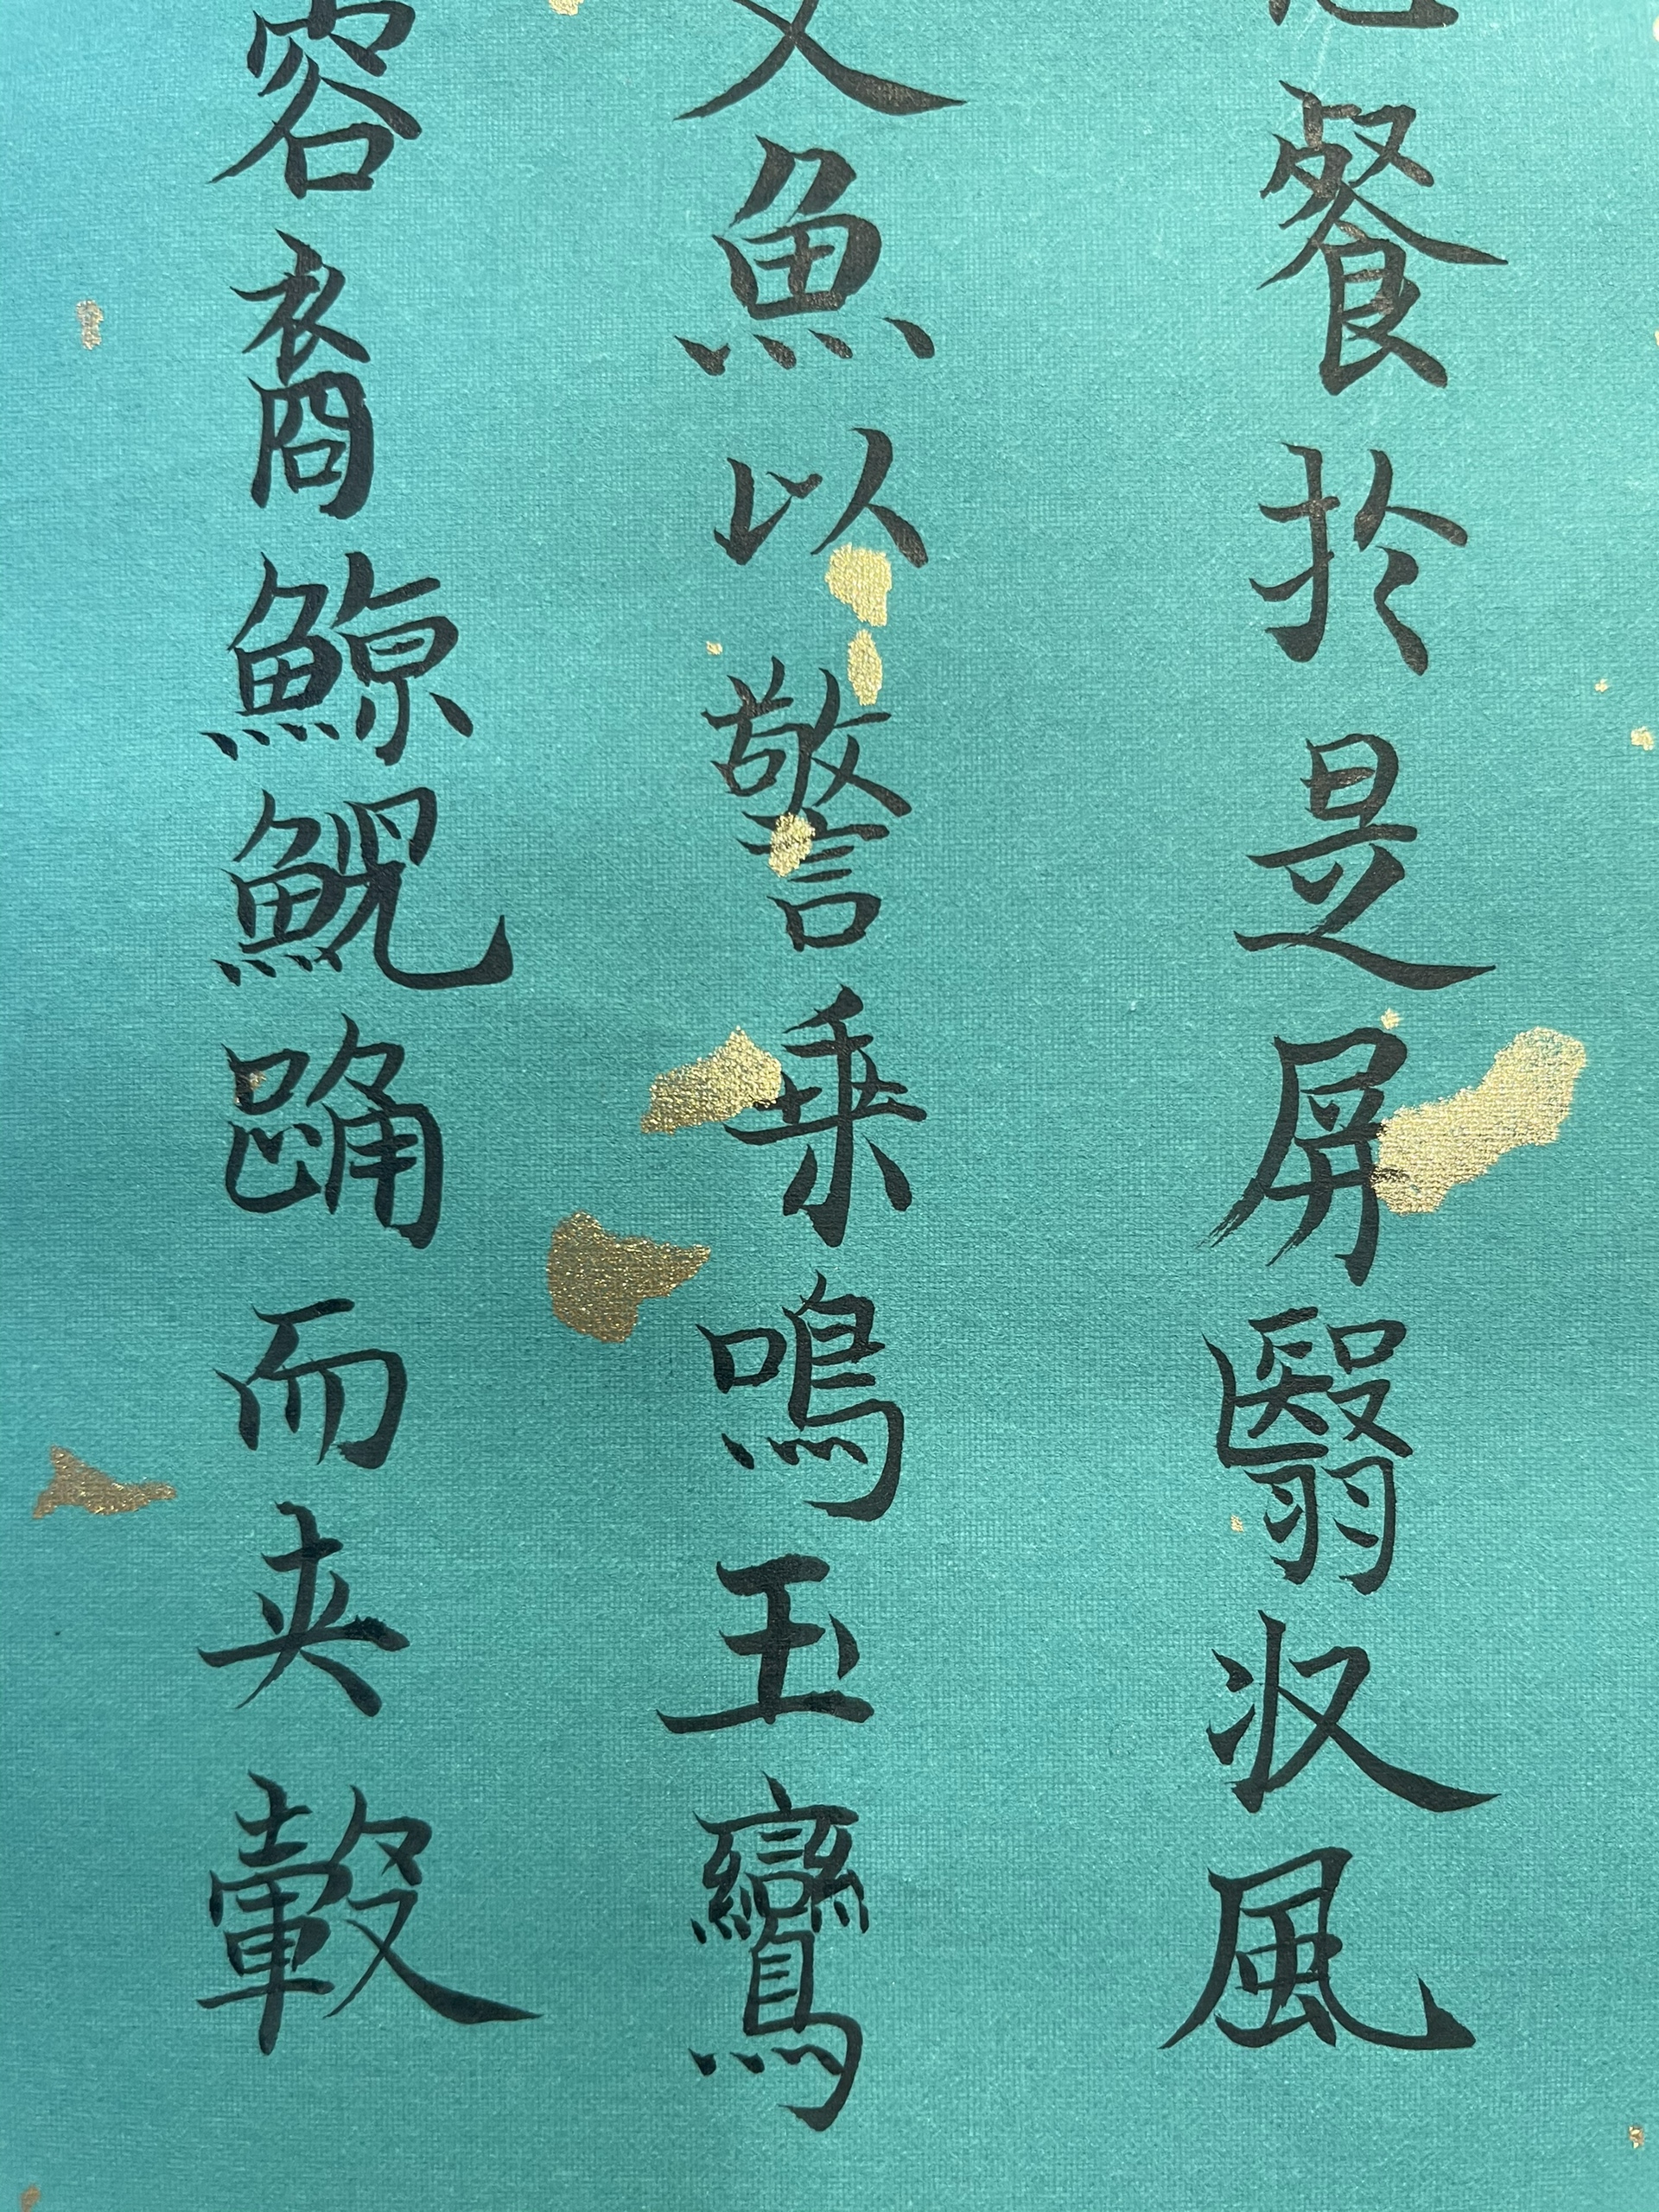 餐扵是屏翳収風
文魚以警乗鳴玉鸞
容裔鯨鯢踊而夾轂